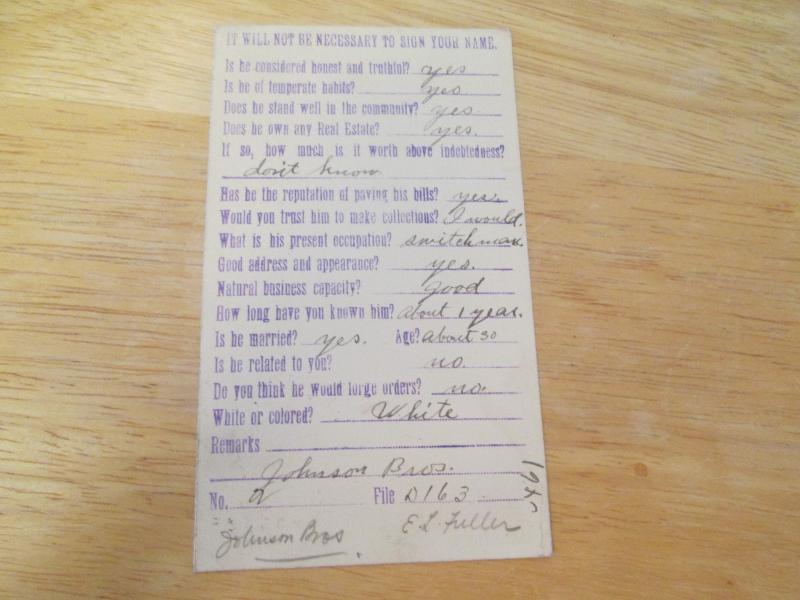 IT WILL NOT BE NECESSARY TO SIGN YOUR NAME.
Is he considered honest and truthful? yes
Is he of temperate habits? yes
Does he stand well in the community? yes
Does he own any Real Estate? yes.
If so, how much is it worth above indebtedness?
don't know
Has he the reputation of paying his bills? yes.
Would you trust him to make collections? I would.
What is his present occupation? switchman.
Good address and appearance? yes.
Natural business capacity? good
How long have you known him? about 1 year.
Is he married? yes. Age? about 30
Is he related to you? no.
Do you think he would forge orders? no.
White or colored? White
Remarks
Johnson Bros.
No. 2 File D163
Johnson Bros E L Fuller